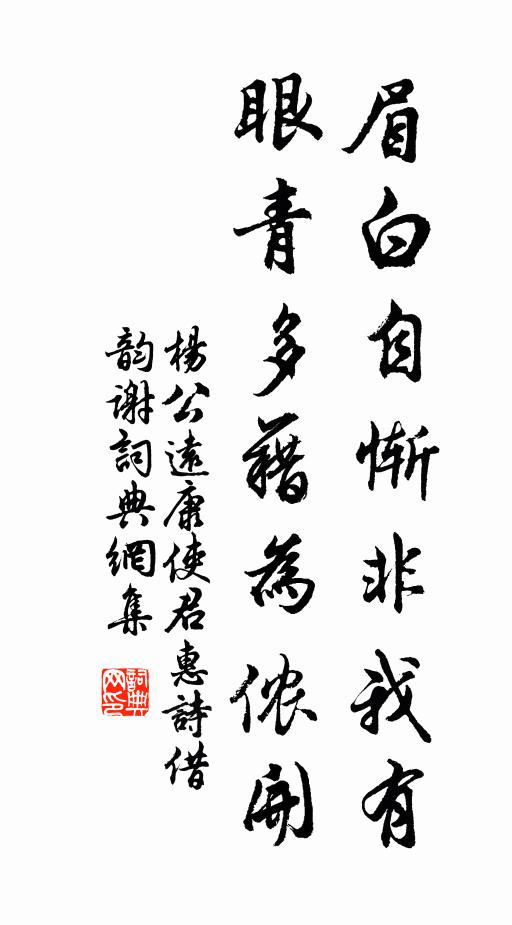 眉白自惭非我有
眼青多藉為侬開
楊公遠康使君惠詩借
韵謝詞典網集
詞典网印